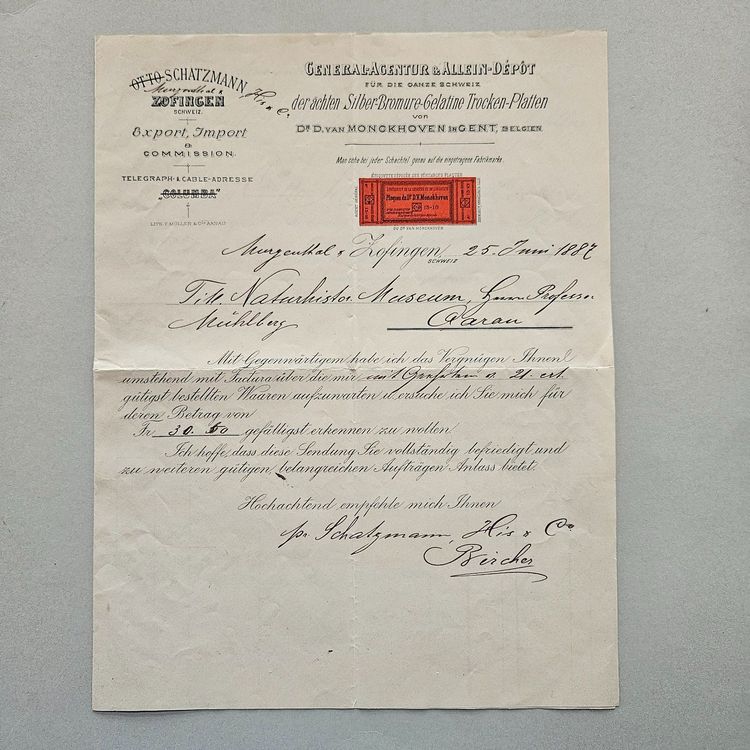 OTTO SCHATZMANN
Morgenthal &
His & Co
ZOFINGEN
SCHWEIZ.
Export, Import
&
COMMISSION.
TELEGRAPH- & CABLE-ADRESSE
„COLUMBA"
LITH. F. MÜLLER & Cie AARAU
GENERAL-AGENTUR & ALLEIN-DÉPÔT
FÜR DIE GANZE SCHWEIZ
der ächten Silber-Bromure-Gelatine Trocken-Platten
von
DR. D. VAN MONCKHOVEN IN GENT, BELGIEN.
Man sehe bei jeder Schachtel genau auf die eingetragene Fabrikmarke.
ETIQUETTE DÉPOSÉE DES VÉRITABLES PLAQUES
Plaques du Dr. D. V. Monckhoven
13-18
DU DR VAN MONCKHOVEN
Murgenthal & Zofingen, 25. Juni 1887
SCHWEIZ
Tit. Naturhistor. Museum, Herrn Professor
Mühlberg Aarau
Mit Gegenwärtigem habe ich das Vergnügen Ihnen
umstehend mit Factura über die mir mit v. 21. crt.
gütigst bestellten Waaren aufzuwarten u. ersuche ich Sie mich für
deren Betrag von
Fr. 30. 60 gefälligst erkennen zu wollen.
Ich hoffe, dass diese Sendung Sie vollständig befriedigt und
zu weiteren gütigen, belangreichen Aufträgen Anlass bietet.
Hochachtend empfehle mich Ihnen
pr. Schatzmann, His & Co
Bircher